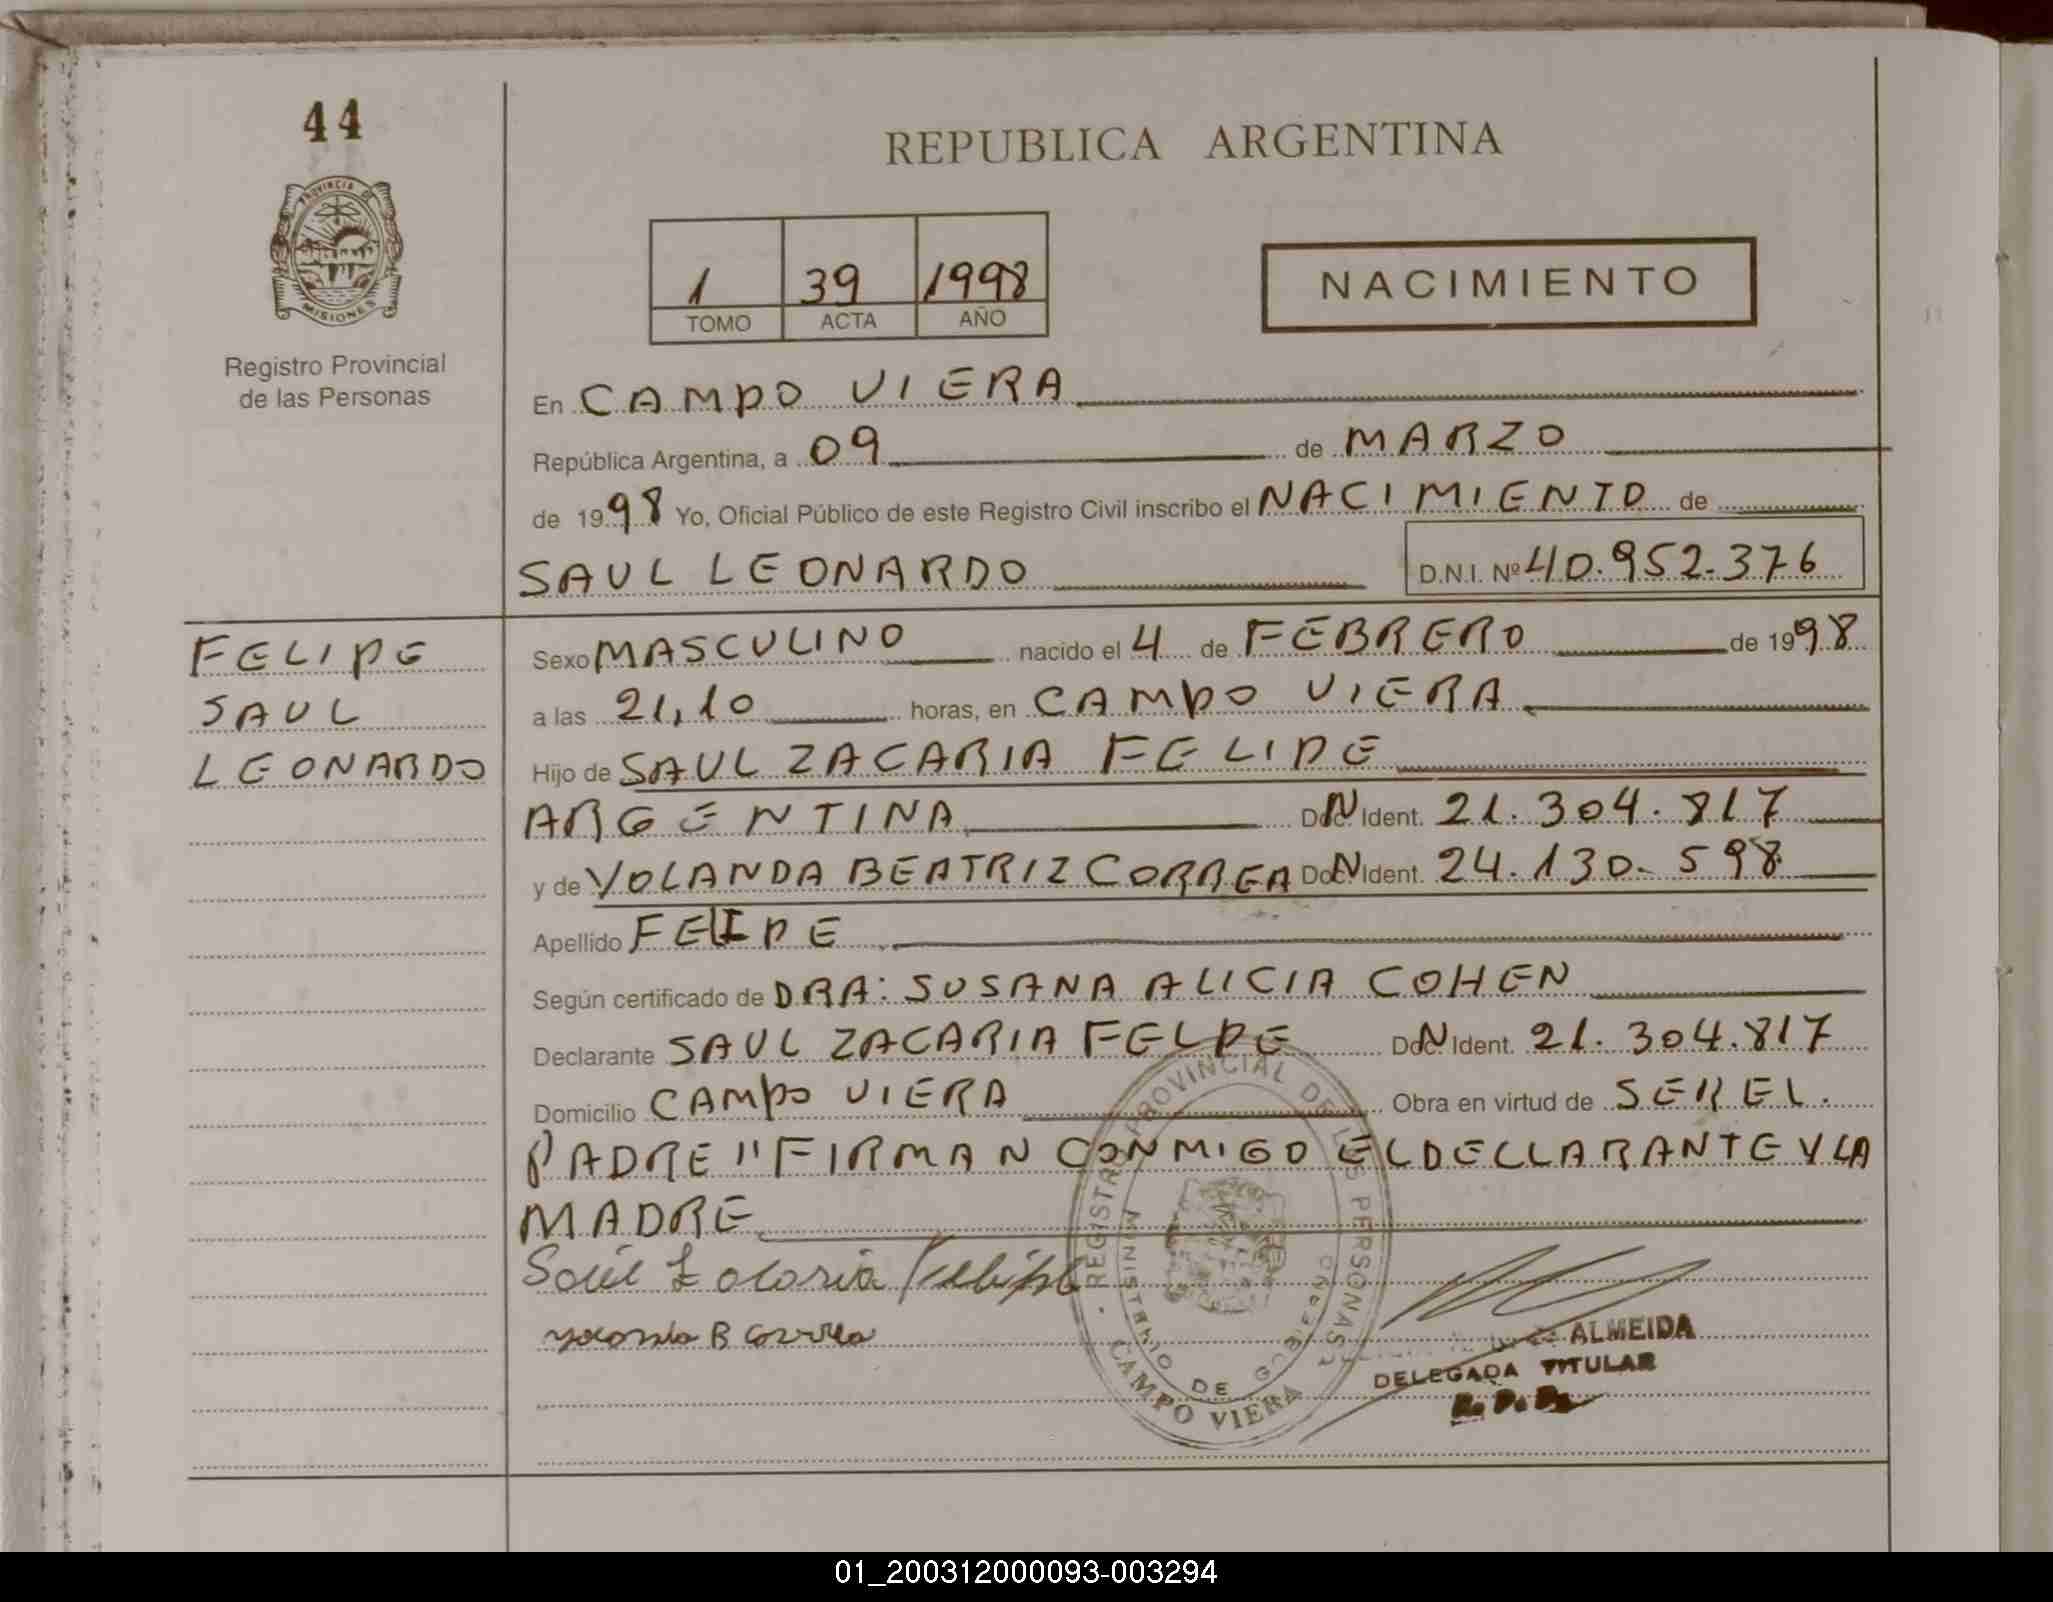 44
PROVINCIA DE
MISIONES
Registro Provincial
de las Personas
REPUBLICA ARGENTINA
1 39 1998
TOMO ACTA AÑO
NACIMIENTO
En CAMPO VIERA
República Argentina, a 09 de MARZO
de 1998 Yo, Oficial Público de este Registro Civil inscribo el NACIMIENTO de
SAUL LEONARDO D.N.I. Nº 40.952.376
FELIPE
SAUL
LEONARDO
Sexo MASCULINO nacido el 4 de FEBRERO de 1998
a las 21,10 horas, en CAMPO VIERA
Hijo de SAUL ZACARIA FELIPE
ARGENTINA DN Ident. 21.304.817
y de YOLANDA BEATRIZ CORREA DN Ident. 24.130.598
Apellido FELIPE
Según certificado de DRA: SUSANA ALICIA COHEN
Declarante SAUL ZACARIA FELPE DN Ident. 21.304.817
Domicilio CAMPO VIERA Obra en virtud de SER EL.
PADRE "FIRMAN CONMIGO EL DECLLARANTE Y LA
MADRE
Saul Zacaria Felipe
Yolanda B Correa
REGISTRO PROVINCIAL DE LAS PERSONAS
MINISTERIO DE GOBIERNO
CAMPO VIERA
ALMEIDA
DELEGADA TITULAR
R. P. P.
01_200312000093-003294